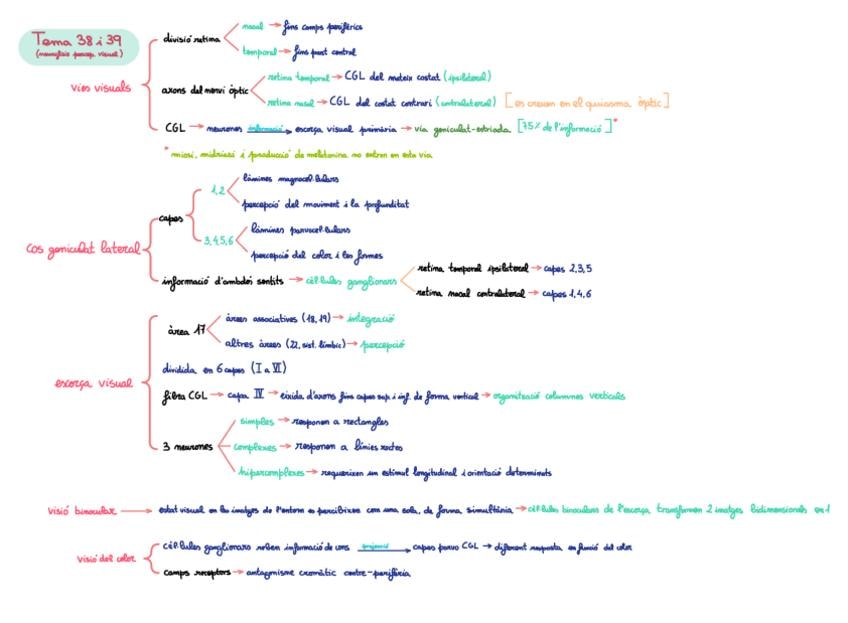 Tema 38 i 39
(neurofisio percep. visual)
vies visuals
divisió retina
nasal → fins camps perifèrics
temporal → fins part central
axons del nervi òptic
retina temporal → CGL del mateix costat (ipsilateral)
retina nasal → CGL del costat contrari (contralateral) [es creuen en el quiasma òptic]
CGL → neurones informació → escorça visual primària → via geniculat-estriada [75% de l'informació]*
* miosi, midriasi i producció de melatonina no entren en esta via
cos geniculat lateral
capes
1,2
làmines magnocel·lulars
percepció del moviment i la profunditat
3,4,5,6
làmines parvocel·lulars
percepció del color i les formes
informació d'ambdós sentits → cèl·lules ganglionars
retina temporal ipsilateral → capes 2,3,5
retina nasal contralateral → capes 1,4,6
escorça visual
àrea 17
àrees associatives (18,19) → integració
altres àrees (22, sist. límbic) → percepció
dividida en 6 capes (I a VI)
fibra CGL → capa IV → eixida d'axons fins capes sup. i inf. de forma vertical → organització columnes verticals
3 neurones
simples → responen a rectangles
complexes → responen a línies rectes
hipercomplexes → requereixen un estímul longitudinal i orientació determinats
visió binocular → estat visual en les imatges de l'entorn es percibixen com una sola, de forma simultània → cèl·lules binoculars de l'escorça, transformen 2 imatges bidimensionals en 1
visió del color
cèl·lules ganglionars reben informació de cons projecció → capes parvo CGL → diferent resposta en funció del color
camps receptors → antagonisme cromàtic centre-perifèria